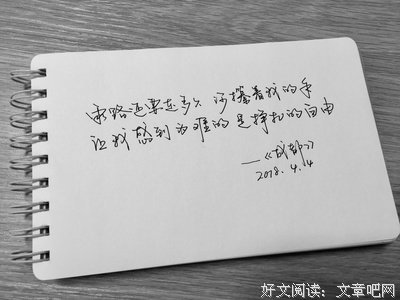 余路还要走多久 你攥着我的手
让我感到为难的是挣扎的自由
—《成都》
2018.4.4
好文阅读：文章吧网